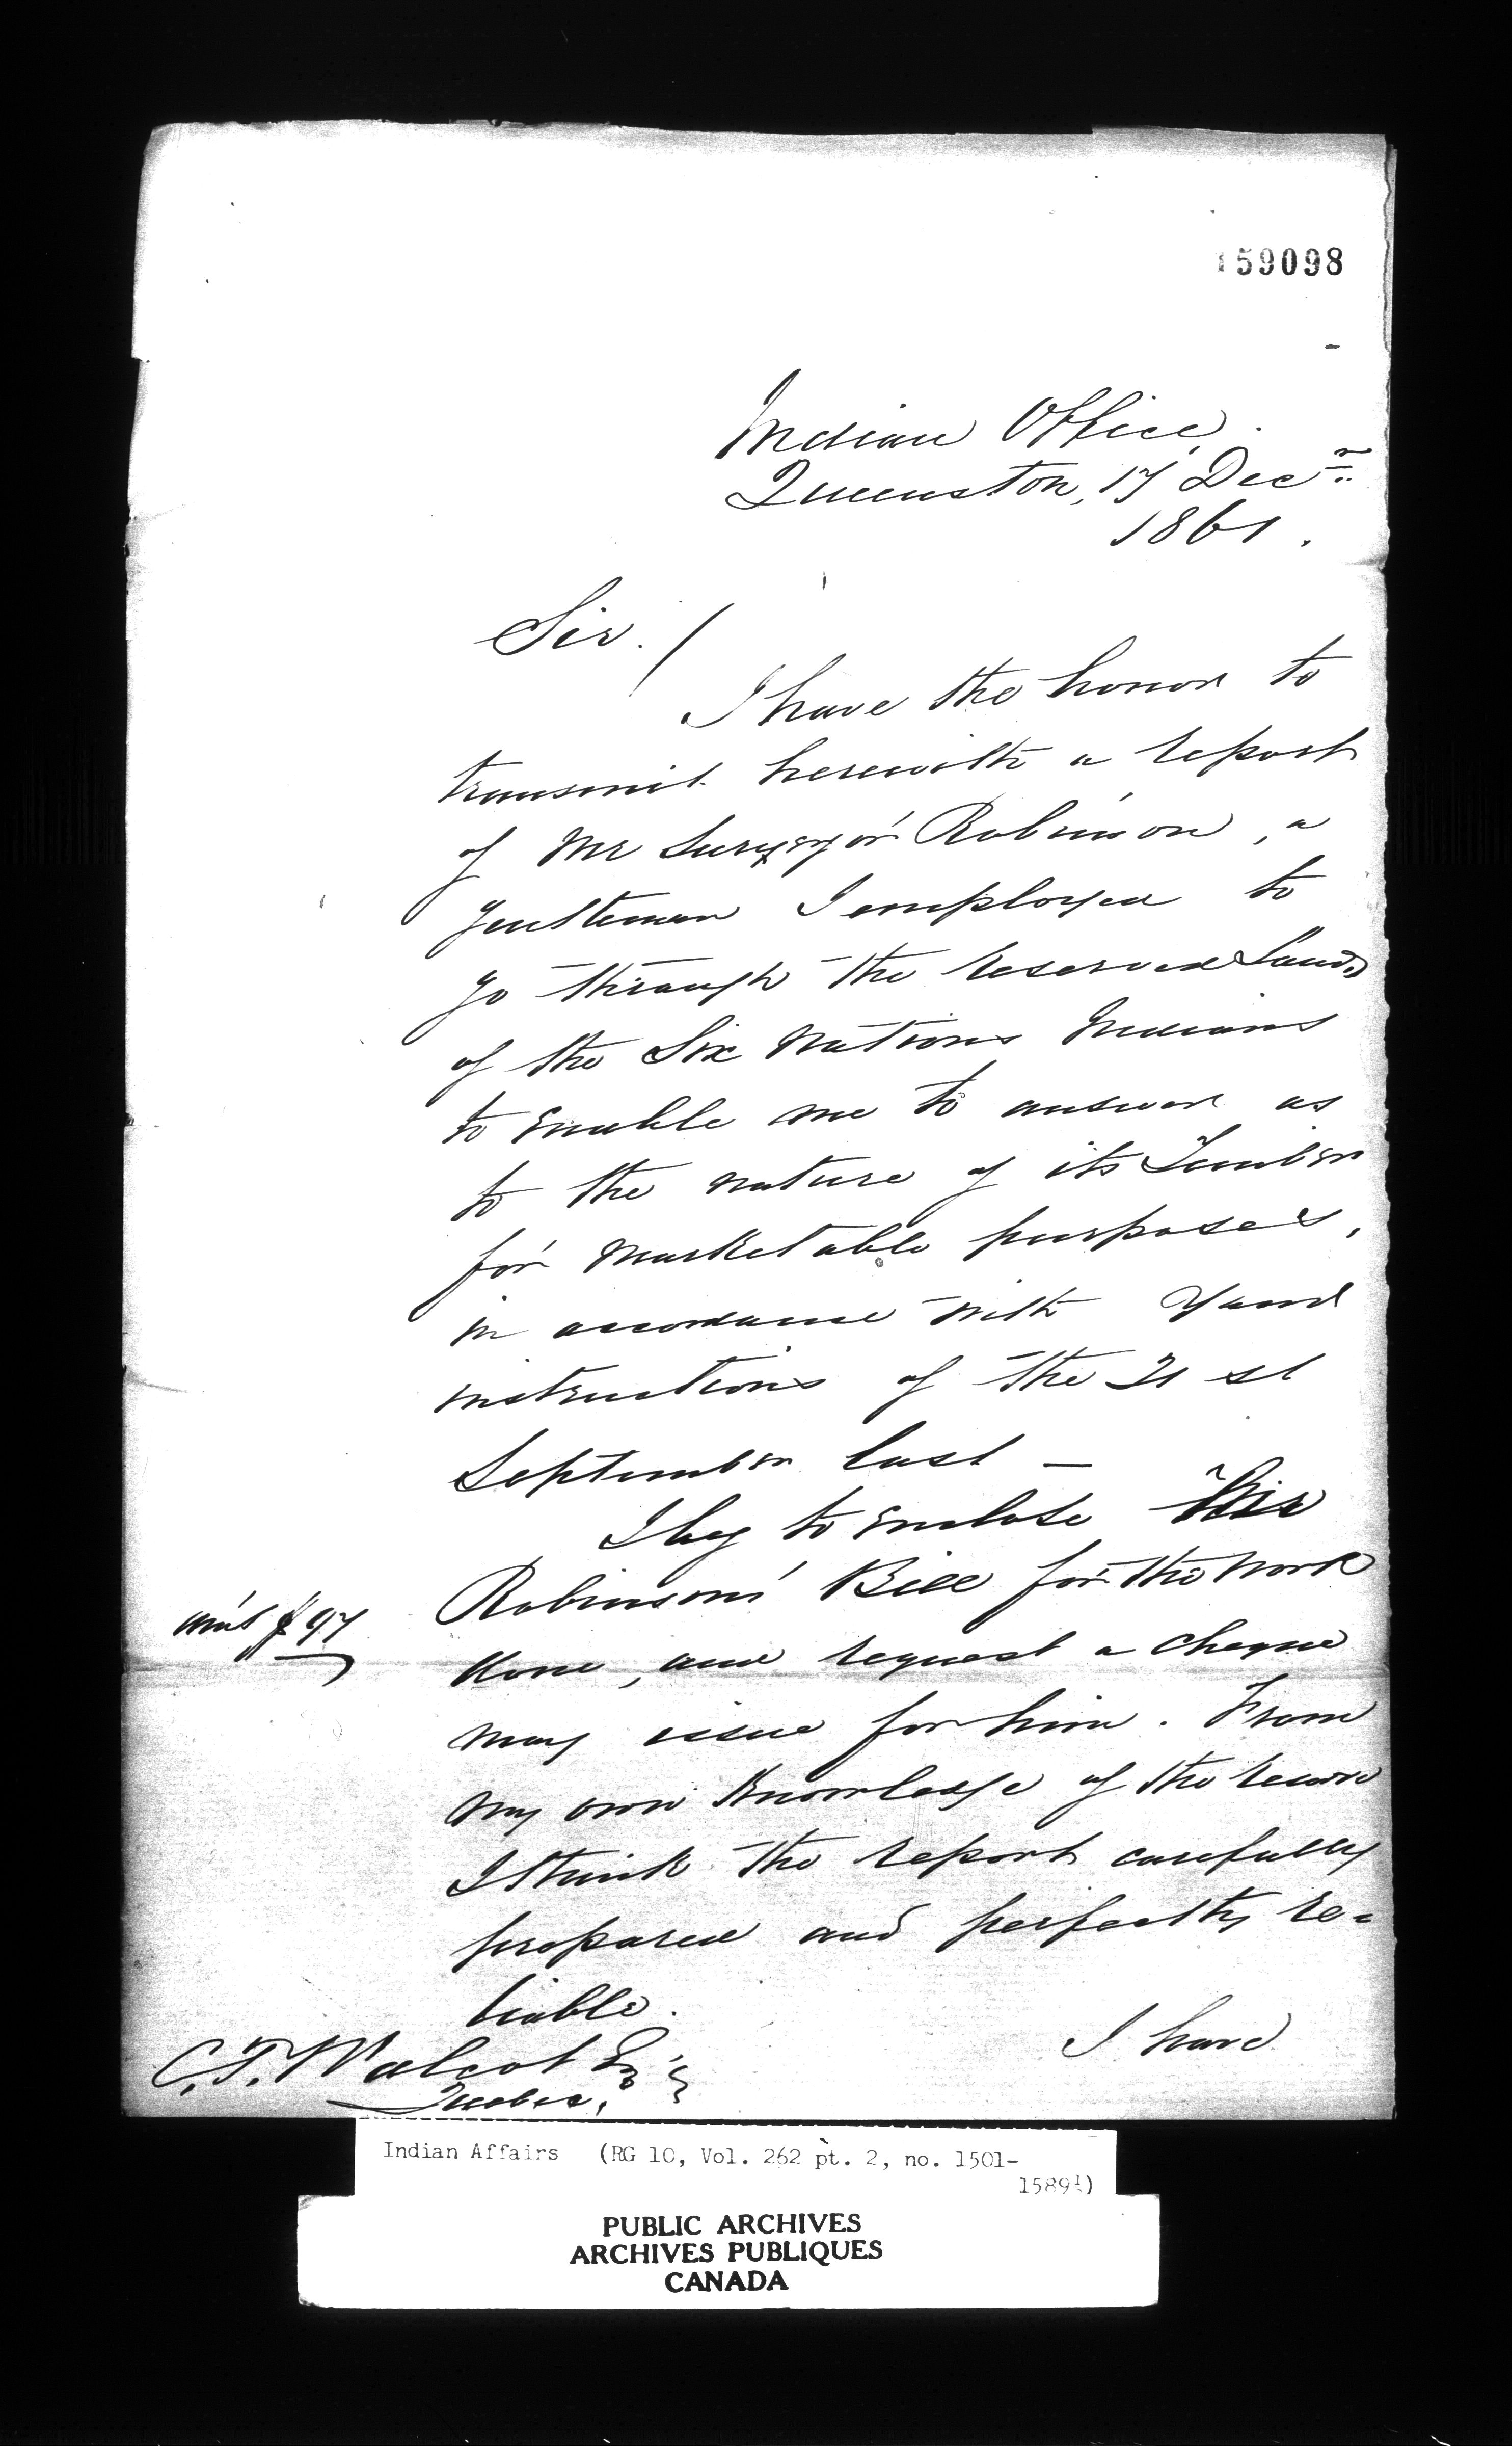 159098
Indian Office.
Queenston, 17 Decr
1861.
Sir./
I have the honor to
transmit herewith a report
of Mr Surveyor Robinson, a
gentleman I employed to
go through the reserved Lands
of the Six Nations Indians
to enable me to answer as
to the nature of its Timber
for marketable purposes,
in accordance with your
instructions of the 21st
September last —
I beg to enclose
Robinson's Bill for the work
done, and request a cheque
may issue for him. From
my own knowledge of the
I think the report carefully
prepared and perfectly re=
liable.
amt $97
I have
C. T. Walcot Esqr
Quebec,
Indian Affairs (RG 10, Vol. 262 pt. 2, no. 1501-
1589½)
PUBLIC ARCHIVES
ARCHIVES PUBLIQUES
CANADA